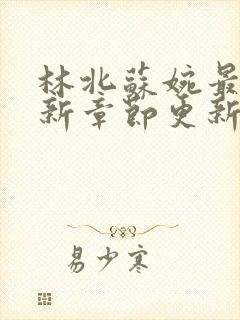 林北蘇婉最
新章節更新
易少寒